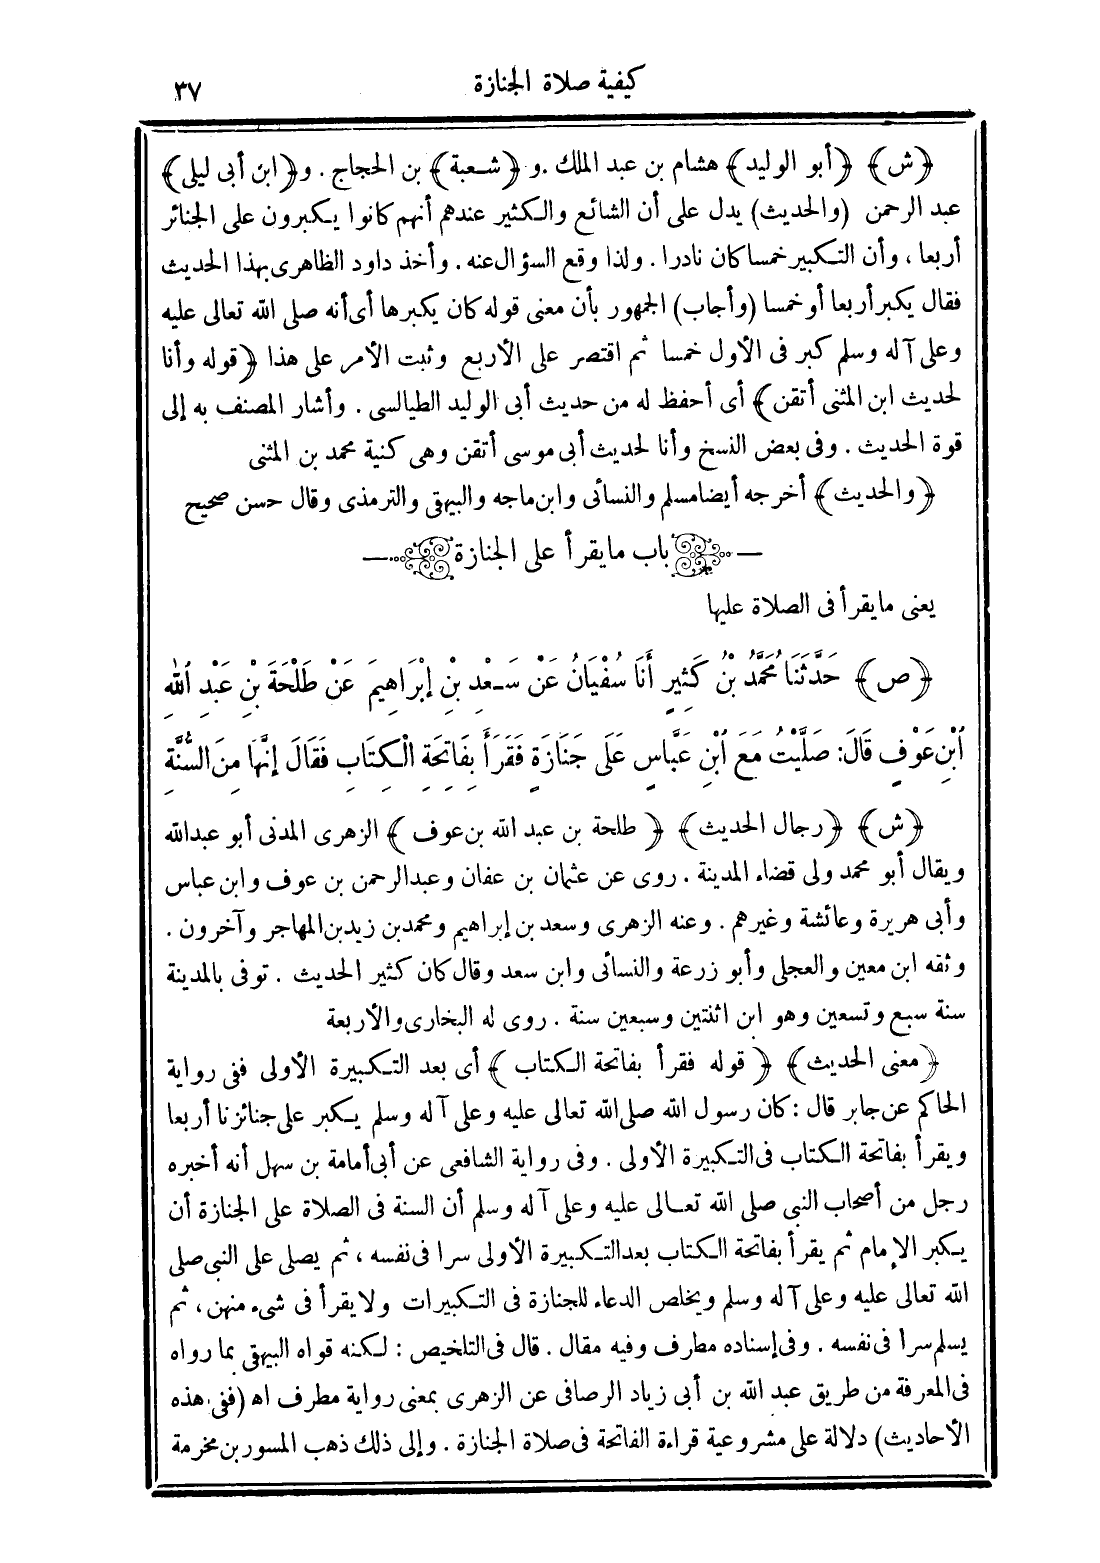 كيفية صلاة الجنازة
٣٧
﴿ش﴾ ﴿أبو الوليد﴾ هشام بن عبد الملك . و ﴿شعبة﴾ بن الحجاج . و﴿ابن أبى ليلى﴾
عبد الرحمن (والحديث) يدل على أن الشائع والكثير عندهم أنهم كانوا يكبرون على الجنائز
أربعا ، وأن التكبير خمسا كان نادرا . ولذا وقع السؤال عنه . وأخذ داود الظاهرى بهذا الحديث
فقال يكبر أربعا أو خمسا (وأجاب) الجمهور بأن معنى قوله كان يكبرها أى أنه صلى الله تعالى عليه
وعلى آله وسلم كبر فى الأول خمسا ثم اقتصر على الأربع وثبت الأمر على هذا ﴿قوله وأنا
لحديث ابن المثنى أتقن﴾ أى أحفظ له من حديث أبى الوليد الطيالسى . وأشار المصنف به إلى
قوة الحديث . وفى بعض النسخ وأنا لحديث أبى موسى أتقن وهى كنية محمد بن المثنى
﴿والحديث﴾ أخرجه أيضا مسلم والنسائى وابن ماجه والبيهقى والترمذى وقال حسن صحيح
باب ما يقرأ على الجنازة
يعنى ما يقرأ فى الصلاة عليها
﴿ص﴾ حَدَّثَنَا مُحَمَّدُ بْنُ كَثِيرٍ أَنَا سُفْيَانُ عَنْ سَعْدِ بْنِ إِبْرَاهِيمَ عَنْ طَلْحَةَ بْنِ عَبْدِ اللهِ
ابْنِ عَوْفٍ قَالَ: صَلَّيْتُ مَعَ ابْنِ عَبَّاسٍ عَلَى جَنَازَةٍ فَقَرَأَ بِفَاتِحَةِ الْكِتَابِ فَقَالَ إِنَّهَا مِنَ السُّنَّةِ
﴿ش﴾ ﴿رجال الحديث﴾ ﴿طلحة بن عبد الله بن عوف﴾ الزهرى المدنى أبو عبدالله
ويقال أبو محمد ولى قضاء المدينة . روى عن عثمان بن عفان وعبدالرحمن بن عوف وابن عباس
وأبى هريرة وعائشة وغيرهم . وعنه الزهرى وسعد بن إبراهيم ومحمد بن زيد بن المهاجر وآخرون .
وثقه ابن معين والعجلى وأبو زرعة والنسائى وابن سعد وقال كان كثير الحديث . توفى بالمدينة
سنة سبع وتسعين وهو ابن اثنتين وسبعين سنة . روى له البخارى والأربعة
﴿معنى الحديث﴾ ﴿قوله فقرأ بفاتحة الكتاب﴾ أى بعد التكبيرة الأولى ففى رواية
الحاكم عن جابر قال : كان رسول الله صلى الله تعالى عليه وعلى آله وسلم يكبر على جنائزنا أربعا
ويقرأ بفاتحة الكتاب فى التكبيرة الأولى . وفى رواية الشافعى عن أبى أمامة بن سهل أنه أخبره
رجل من أصحاب النبى صلى الله تعالى عليه وعلى آله وسلم أن السنة فى الصلاة على الجنازة أن
يكبر الإمام ثم يقرأ بفاتحة الكتاب بعد التكبيرة الأولى سرا فى نفسه ، ثم يصلى على النبى صلى
الله تعالى عليه وعلى آله وسلم ويخلص الدعاء للجنازة فى التكبيرات ولا يقرأ فى شىء منهن ، ثم
يسلم سرا فى نفسه . وفى إسناده مطرف وفيه مقال . قال فى التلخيص : لكنه قواه البيهقى بما رواه
فى المعرفة من طريق عبد الله بن أبى زياد الرصافى عن الزهرى بمعنى رواية مطرف اه (ففى هذه
الأحاديث) دلالة على مشروعية قراءة الفاتحة فى صلاة الجنازة . وإلى ذلك ذهب المسور بن مخرمة